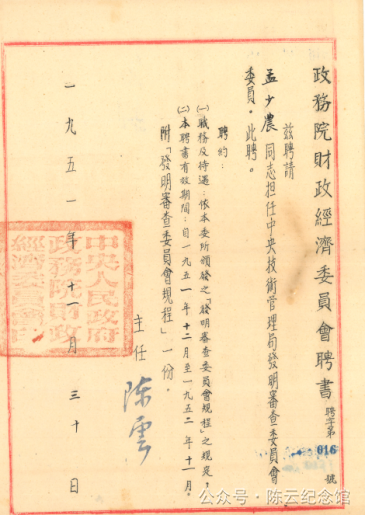 政務院財政經濟委員會聘書 聘字第016號
茲聘請
孟少農同志担任中央技術管理局發明審查委員會
委員。此聘。
聘約：
㈠職務及待遇：依本委所頒發之「發明審查委員會規程」之規定；
㈡本聘書有效期間：自一九五一年十二月至一九五二年十一月。
附「發明審查委員會規程」一份。
主任 陈雲
一九五一年十一月三十日
中央人民政府
政務院財政
經濟委員會印
公众号·陈云纪念馆